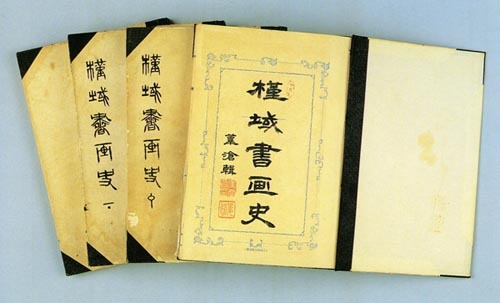 槿域書画史下
槿域書画史中
槿域書画史
葦滄輯